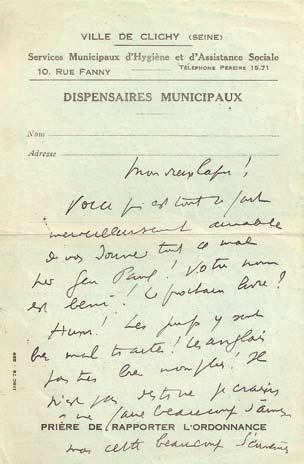 VILLE DE CLICHY (SEINE)
Services Municipaux d'Hygiène et d'Assistance Sociale
10. RUE FANNY
TÉLÉPHONE PEREIRE 15.71
DISPENSAIRES MUNICIPAUX
Nom
Adresse
Mon vieux !
Voici qui est tout à fait
merveilleusement aimable
de vous donner tout ce mal
Gen Paul ! Votre nom
est béni ! Le prochain livre ?
Hum ! Les juifs y sont
mal traités ! Les anglais
pas très bien non plus ! Il
n'est pas je crains
me faire beaucoup d'amis
PRIÈRE DE RAPPORTER L'ORDONNANCE
mais cette beaucoup d'ennemis